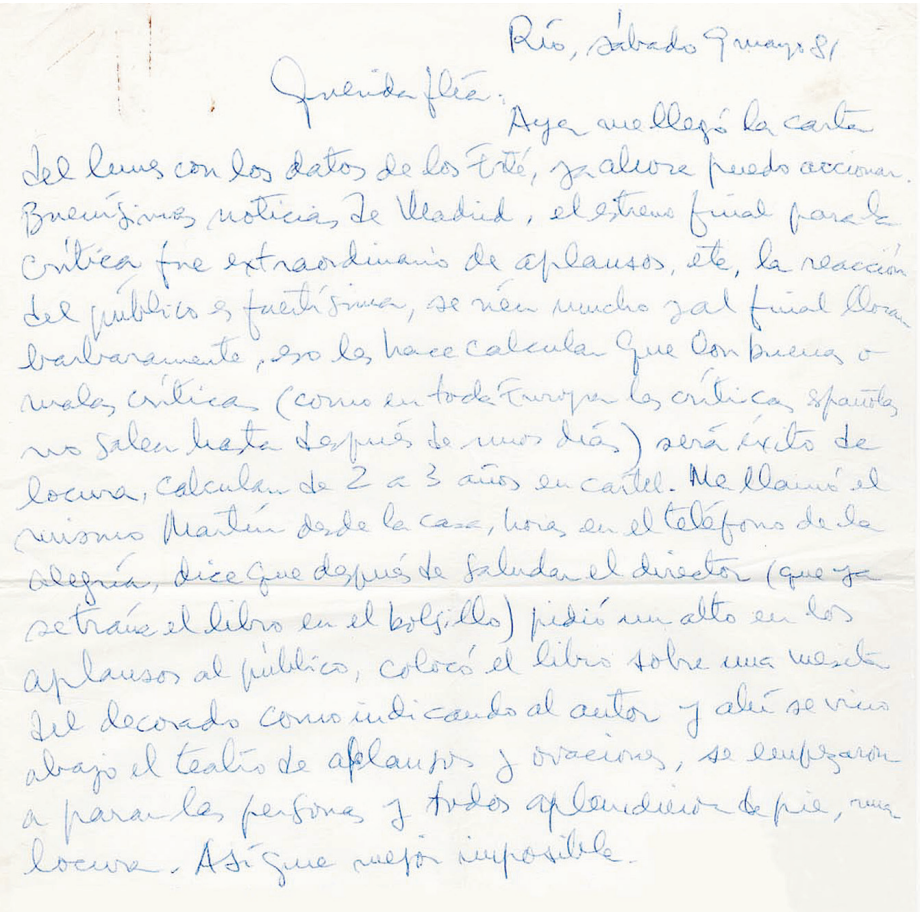 Río, sábado 9 mayo 81
Querida flia:
Ayer me llegó la carta
del lunes con los datos de los Erté, ya ahora puedo accionar.
Buenísimas noticias de Madrid, el estreno final para la
crítica fue extraordinario de aplausos, etc, la reacción
del público es fuertísima, se ríen mucho y al final lloran
barbaramente, eso les hace calcular que con buenas o
malas críticas (como en toda Europa las críticas españolas
no salen hasta después de unos días) será éxito de
locura, calculan de 2 a 3 años en cartel. Me llamó el
mismo Martín desde la casa, horas en el teléfono de la
alegría, dice que después de saludar el director (que ya
se traía el libro en el bolsillo) pidió un alto en los
aplausos al público, colocó el libro sobre una mesita
del decorado como indicando al autor y ahí se vino
abajo el teatro de aplausos y ovaciones, se empezaron
a parar las personas y todos aplaudieron de pie, una
locura. Así que mejor imposible.